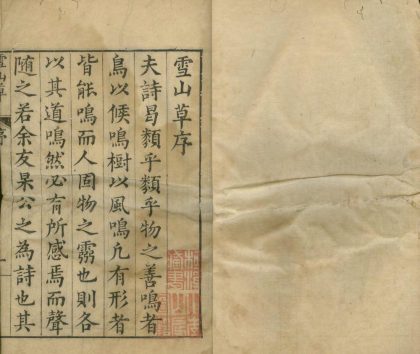 雪山草序
夫詩曷類乎類乎物之善鳴者
鳥以候鳴樹以風鳴凡有形者
皆能鳴而人固物之靈也則各
以其道鳴然必有所感焉而聲
随之若余友杲公之為詩也其
雪山草
序
一